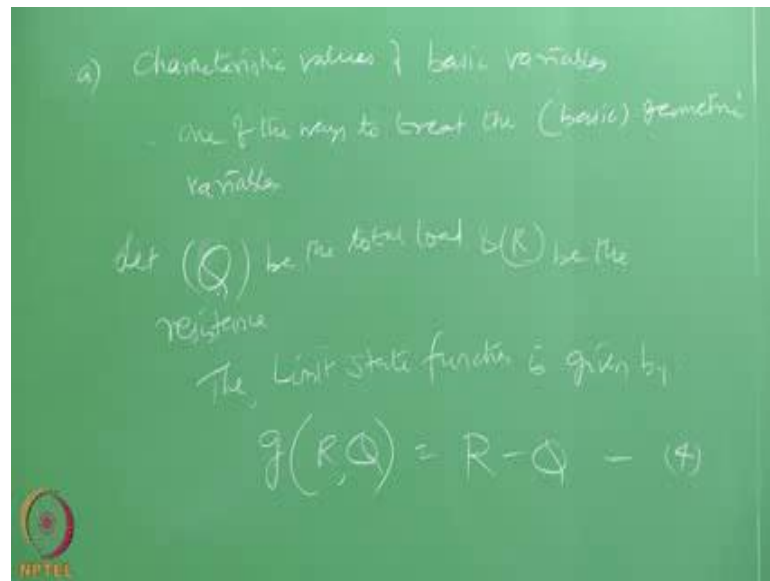 a) Characteristic values of basic variables
one of the ways to treat the (basic) geometric
variables
Let (Q) be the total load &(R) be the
resistence
The Limit state function is given by
g(R,Q) = R-Q - (4)
NPTEL